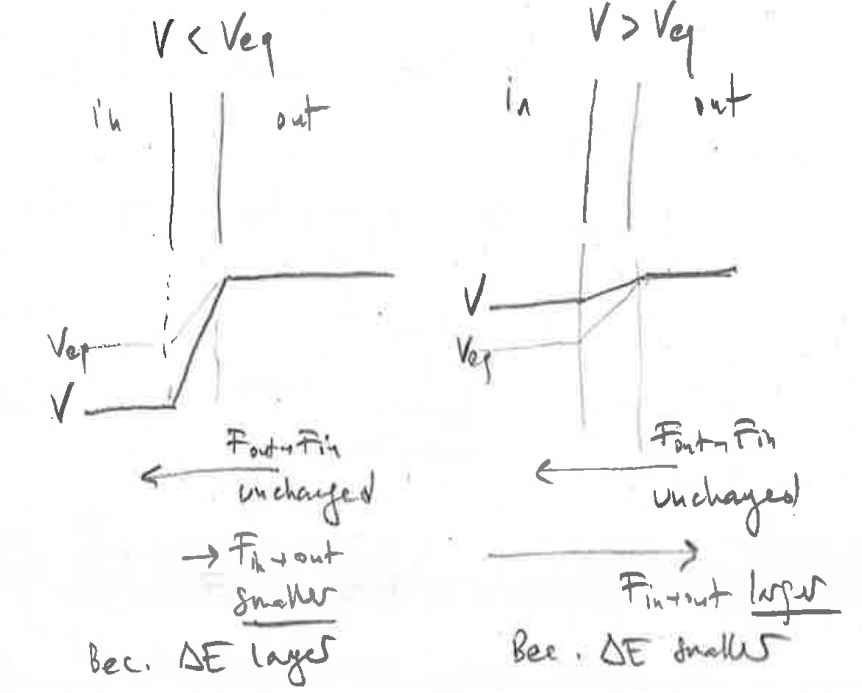 V < Veq
in out
Veq
V
Fout→Fin
unchanged
→ Fin→out
smaller
Bec. ΔE larger
V > Veq
in out
V
Veq
Fout→Fin
unchanged
Fin→out larger
Bec. ΔE smaller